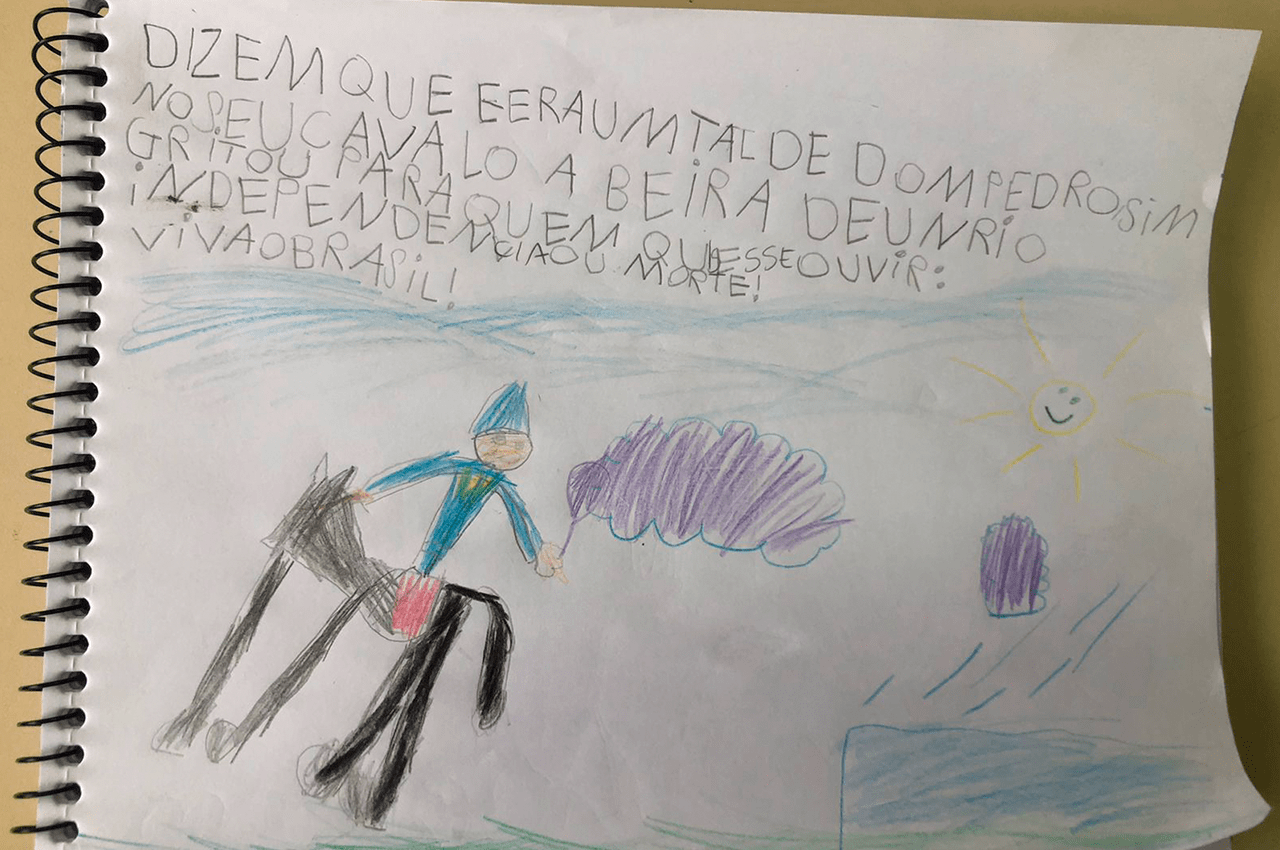 DIZEM QUE E ERA UM TAL DE DOM PEDRO, SIM
NO SEU CAVALO A BEIRA DE UN RIO
GRITOU PARA QUEM QUISESSE OUVIR:
INDEPENDEMCIA OU MORTE!
VIVA O BRASIL!